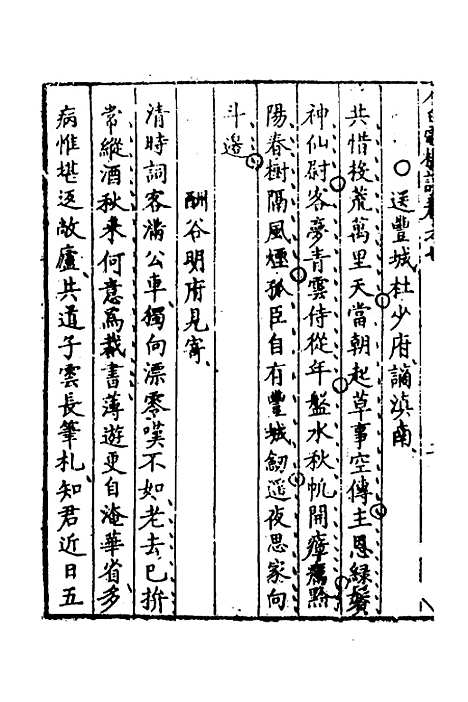 送豐城杜少府謫滇南
共惜投荒萬里天當朝起草事空傳主恩綠鬢
神仙尉客夢青雲侍從年盤水秋帆開瘴黔
陽春樹隔風煙孤臣自有豐城劒遥夜思家向
斗邊
酬谷明府見寄
清時詞客滿公車獨向漂零嘆不如老去已拚
常縱酒秋來何意爲裁書薄遊更自淹華省多
病惟堪返敝廬共道子雲長筆札知君近日五